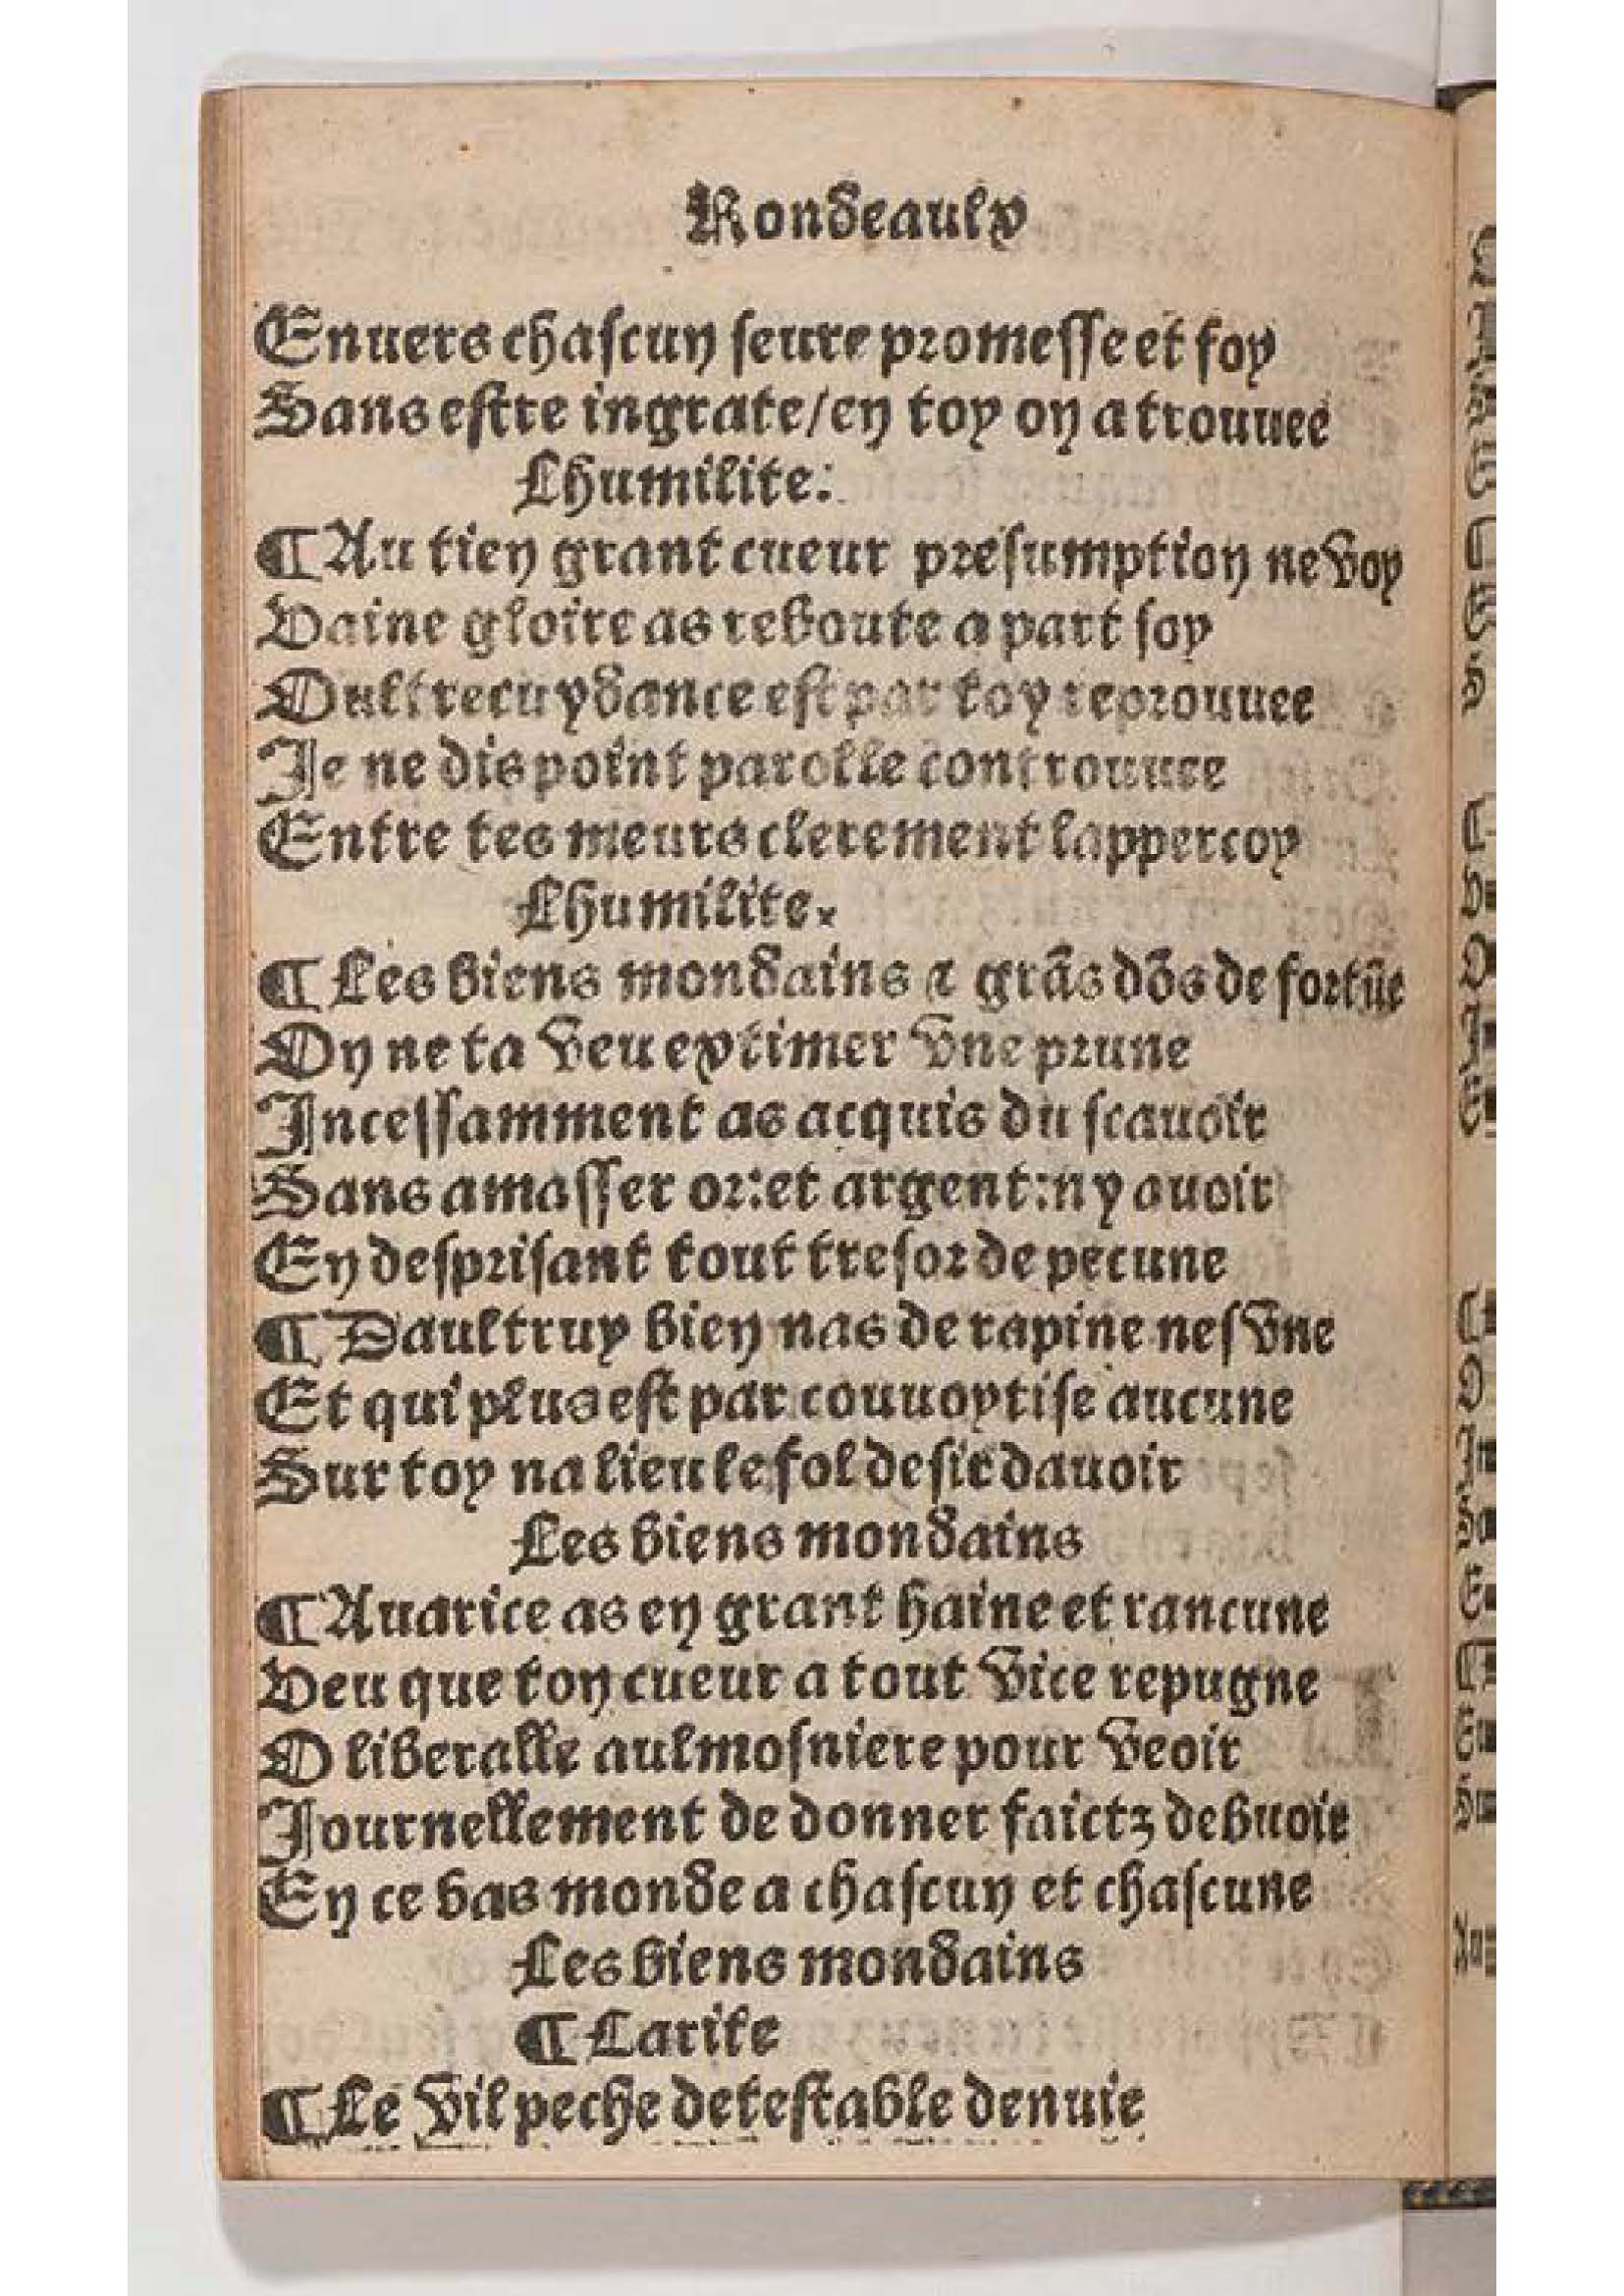 Rondeaulx
Enuers chascun seure promesse et foy
Sans estre ingrate/en toy on a trouuee
Lhumilite:
¶ Au tien grant cueur presumption ne voy
Vaine gloire as reboute a part soy
Oultrecuydance est par toy reprouuee
Je ne dis point parolle controuuee
Entre tes meurs clerement lappercoy
Lhumilite.
¶ Les biens mondains ⁊ grãs dõs de fortũe
On ne ta veu extimer vne prune
Incessamment as acquis du scauoir
Sans amasser or:et argent:ny auoir
En desprisant tout tresor de pecune
¶ Daultruy bien nas de rapine nesvne
Et qui plus est par couuoytise aucune
Sur toy na lieu le fol desir dauoir
Les biens mondains
¶ Auarice as en grant haine et rancune
Veu que ton cueur a tout vice repugne
O liberalle aulmosniere pour veoir
Journellement de donner faictz debuoir
En ce bas monde a chascun et chascune
Les biens mondains
¶ Carite
¶ Le vil peche detestable denuie